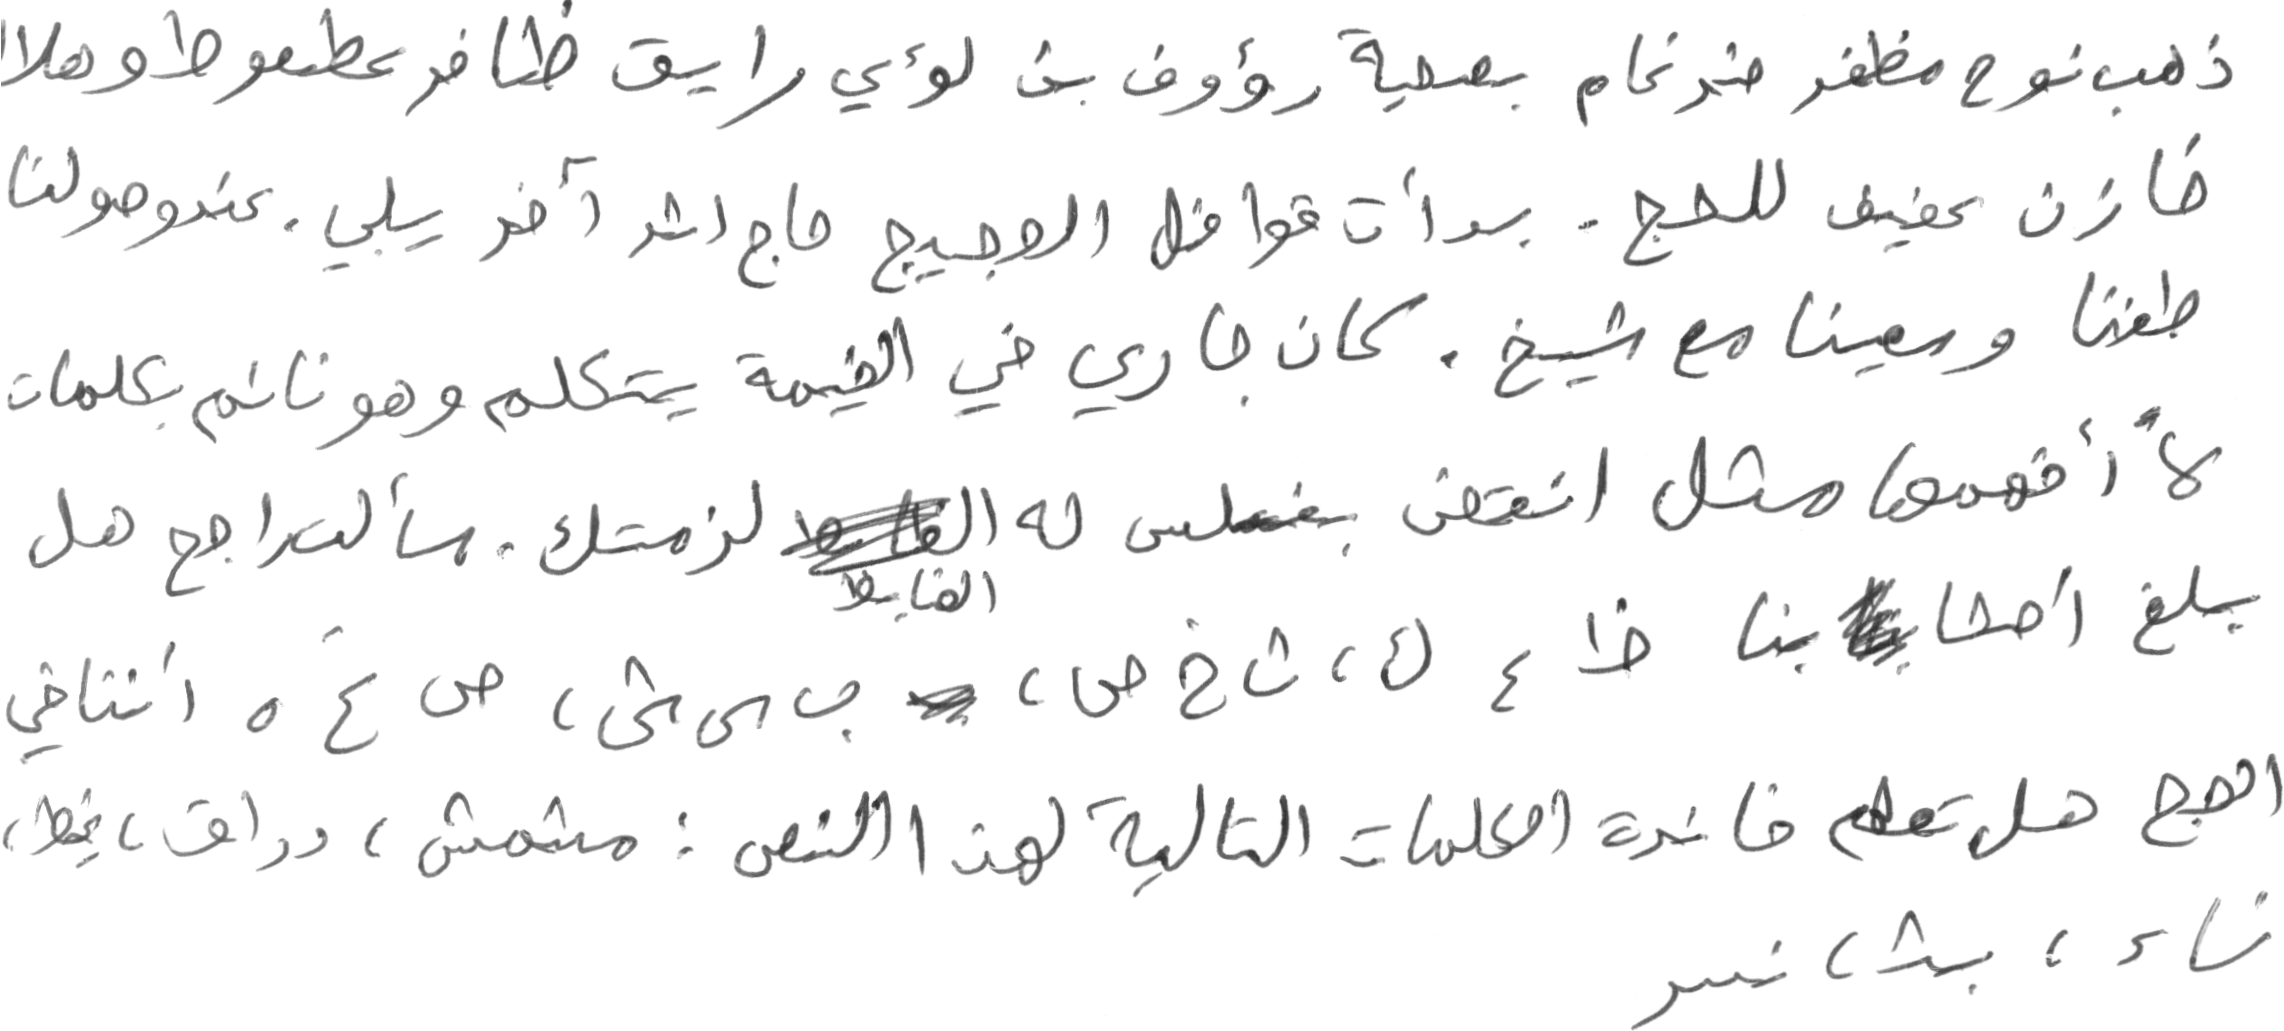 ذهب نوح مظفر ضرغام بصحبة رؤوف بن لؤي رايق ظافر عطعوط وهلال
خازن عفيف للحج. بدأت قوافل الحجيج حاج اثر آخر يلبي. عند وصولنا
طفنا وسعينا مع شيخ. كان جاري في الخيمة يتكلم وهو نائم بكلمات
لا أفهمها مثل انتقض بغلس له القايظ لزمتك. سألت راجح هل
يبلغ أصحابنا ظ ء ك، ث خ ص، ب س ش، ص غ ه أثنا في
الحج هل تعلم فائدة الكلمات التالية لهذا النص: مشمش، دراق، يغظ،
ناء، بث، نسر